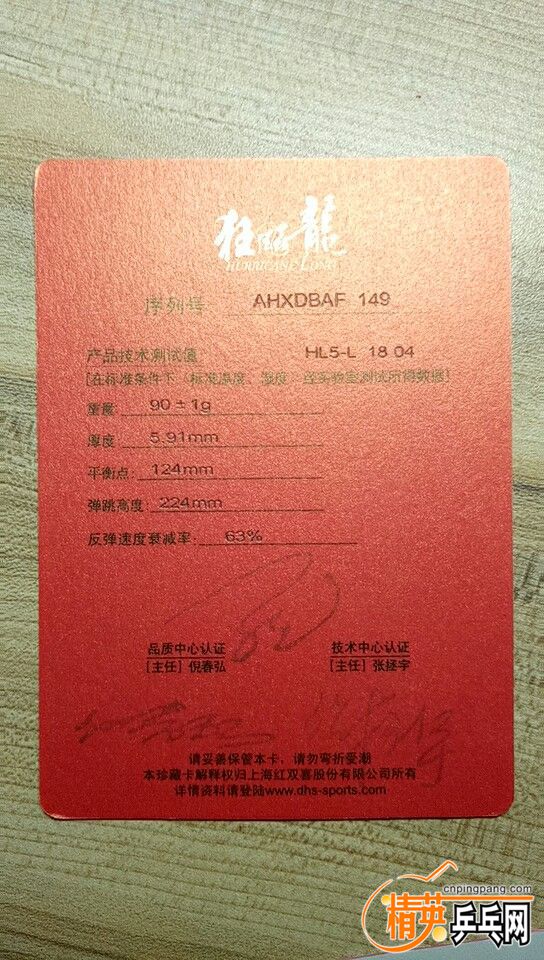 狂飚龍
HURRICANE LONG
序列号 AHXDBAF 149
产品技术测试值 HL5-L 18 04
[在标准条件下(标准温度、湿度)经实验室测试所得数据]
重度: 90±1g
厚度: 5.91mm
平衡点: 124mm
弹跳高度: 224mm
反弹速度衰减率: 63%
品质中心认证 技术中心认证
[主任] 倪春弘 [主任] 张拯宇
请妥善保管本卡,请勿弯折受潮
本珍藏卡解释权归上海红双喜股份有限公司所有
详情资料请登陆www.dhs-sports.com
cnpingpang.com
精英乒乓网